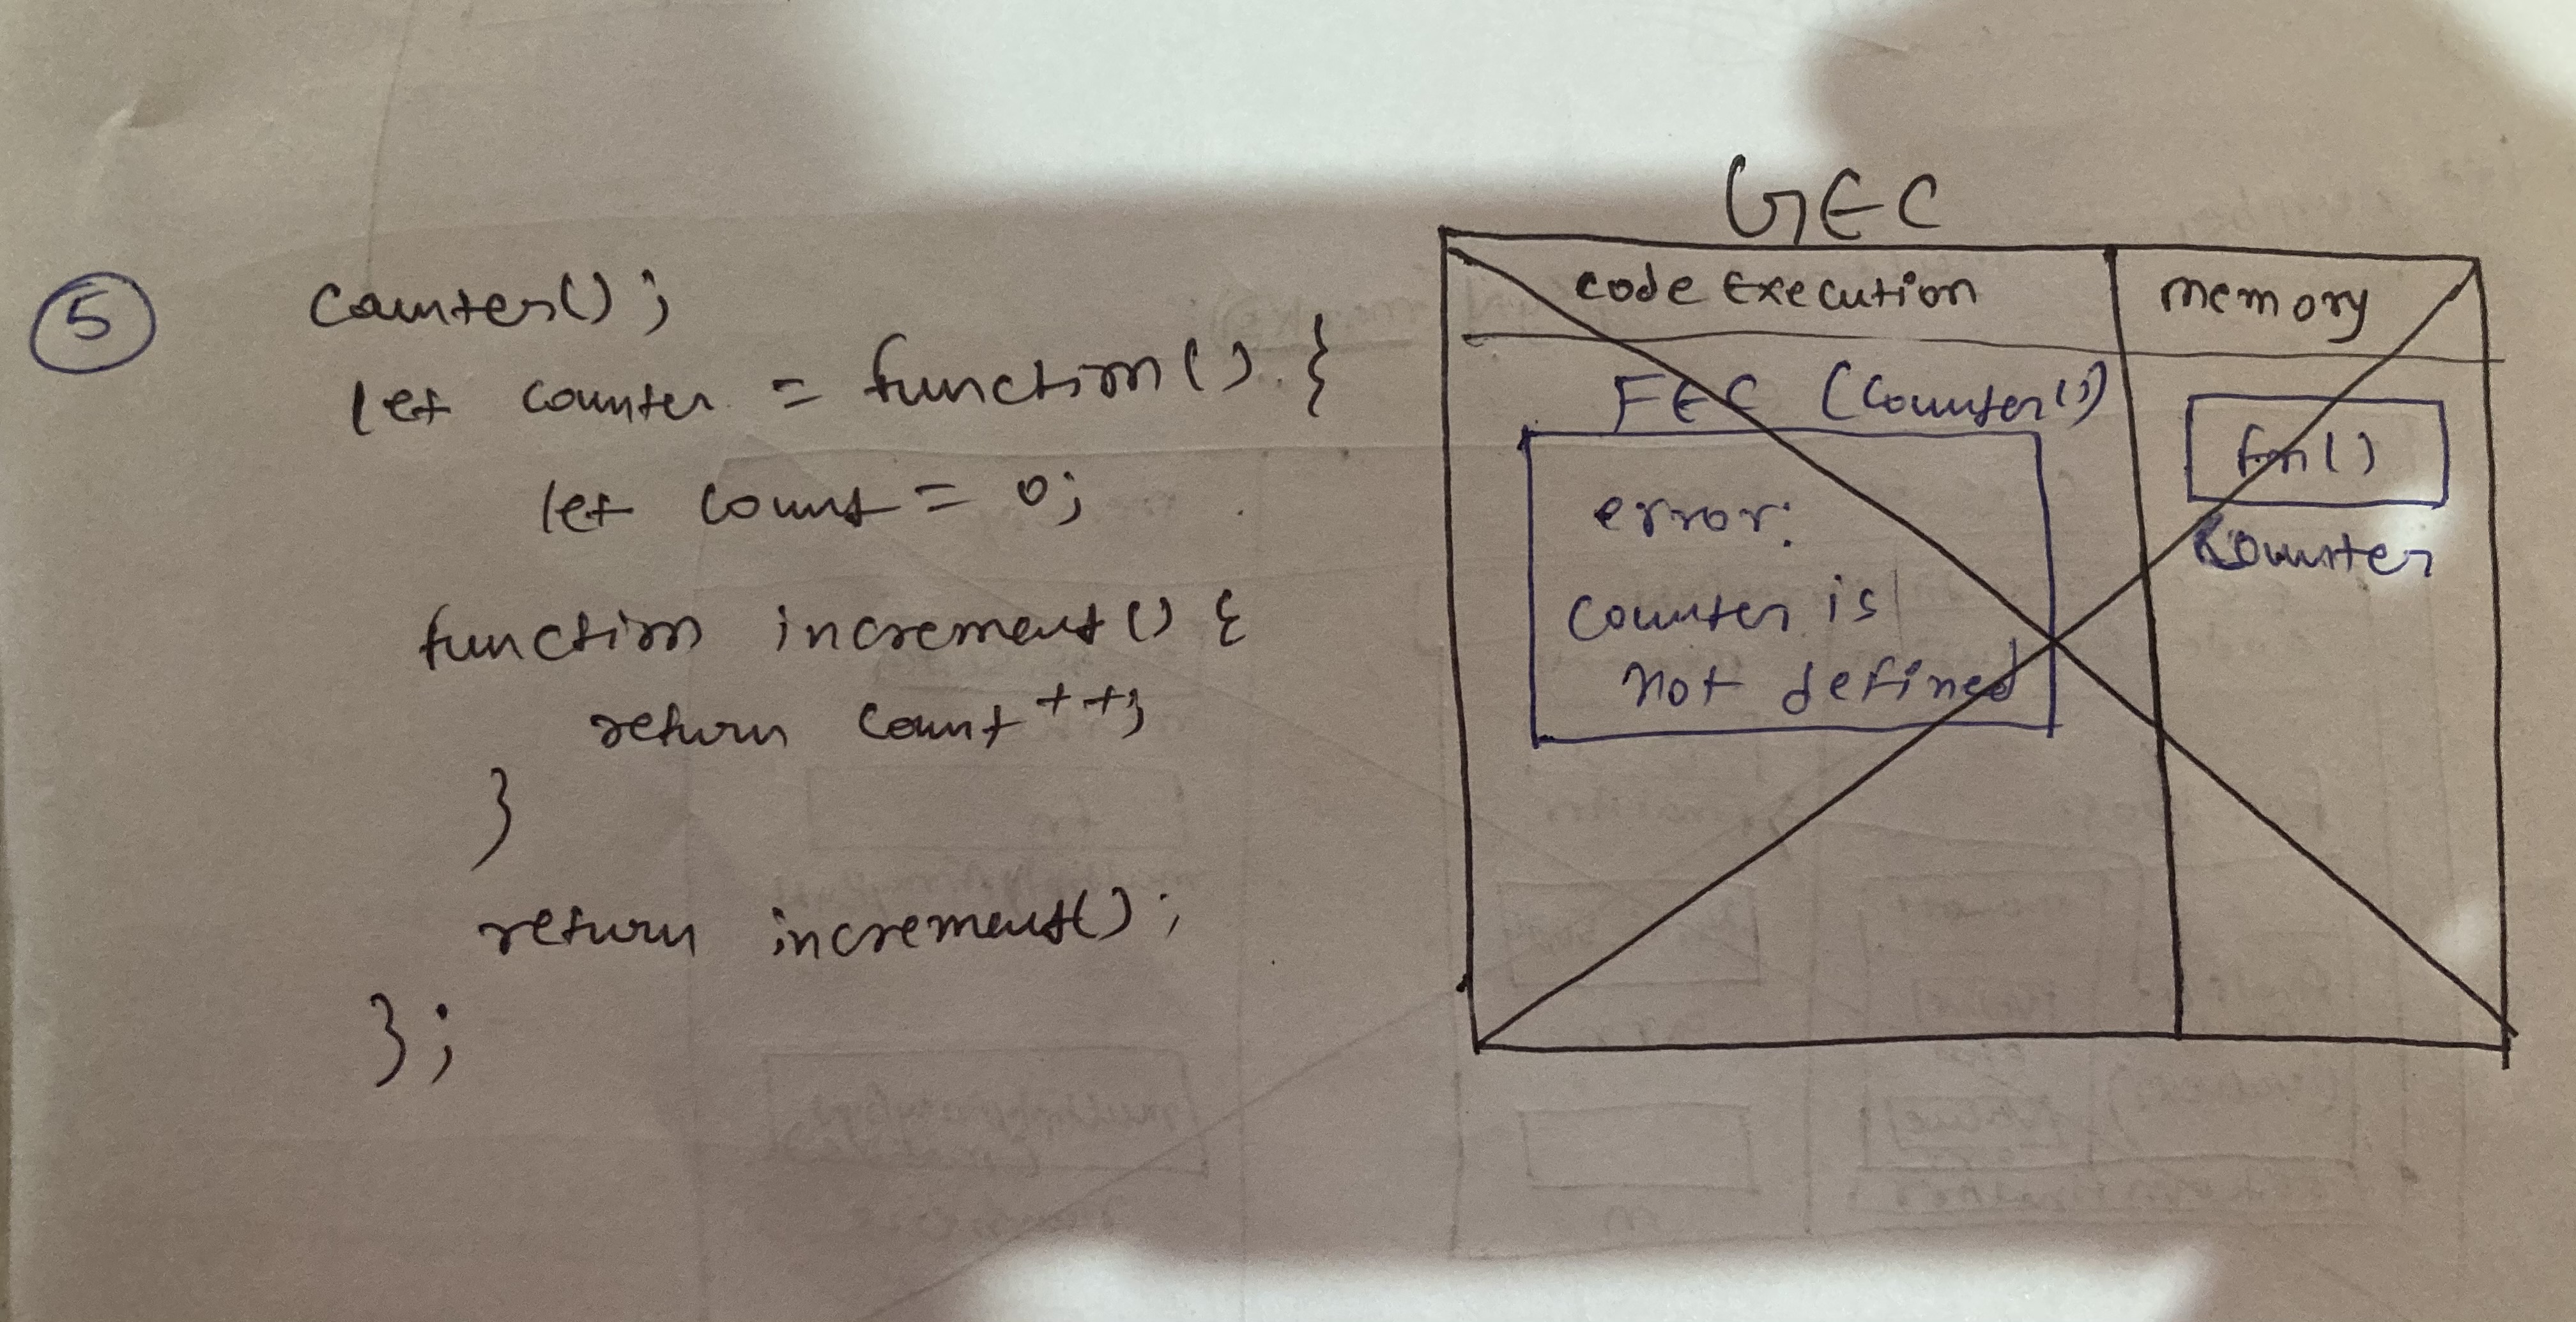 5
counter();
let counter = function() {
let count = 0;
function increment() {
return count++;
}
return increment();
};
GEC
code Execution
memory
FEC (counter())
error:
counter is
not defined
fn()
counter